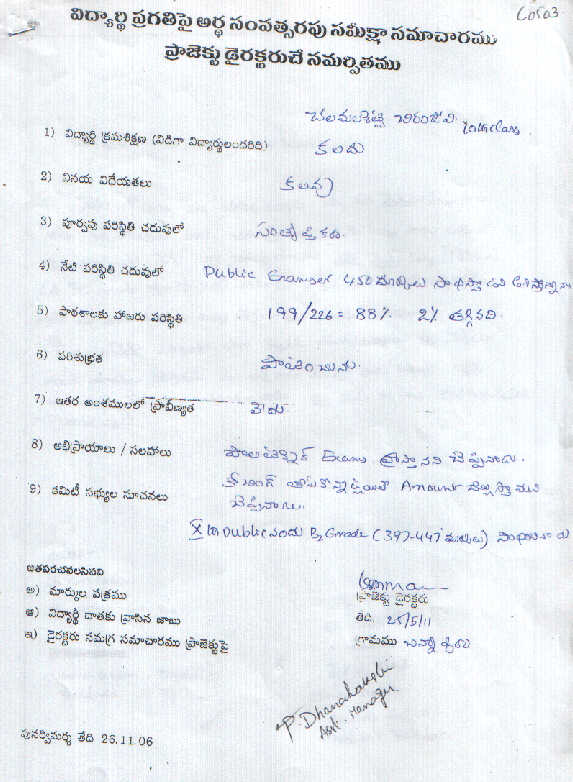 Co503
విద్యార్థి ప్రగతిపై అర్థ సంవత్సరపు సమీక్షా సమాచారము
ప్రాజెక్టు డైరక్టరుచే సమర్పితము
చలమశెట్టి చిరంజీవి. 10th class.
1) విద్యార్థి క్రమశిక్షణ (విడిగా విద్యార్థులందరిది) కలదు
2) వినయ విధేయతలు కలవు
3) పూర్వపు పరిస్థితి చదువులో సంతృప్తికరం.
4) నేటి పరిస్థితి చదువులో Public 450 మార్కులు
5) పాఠశాలకు హాజరు పరిస్థితి 199/226 = 88% 2% తగ్గినది
6) పరిశుభ్రత పాటించును.
7) ఇతర అంశములలో ప్రావీణ్యత లేదు
8) అభిప్రాయాలు / సలహాలు పాలిటెక్నిక్ Exams వ్రాస్తానని చెప్పినాడు.
9) కమిటీ సభ్యుల సూచనలు Amount
చెప్పినారు.
X in public నందు B2 Grade (397-447 మార్కులు)
జతపరచవలసినవి
అ) మార్కుల పత్రము
ఆ) విద్యార్థి దాతకు వ్రాసిన జాబు
ఇ) డైరక్టరు సమగ్ర సమాచారము ప్రాజెక్టుపై
ప్రాజెక్టు డైరక్టరు
తేది. 25/5/11
గ్రామము
P. Dhanalakshmi
Asst. Manager
పునర్విమర్శ తేది 26.11.06